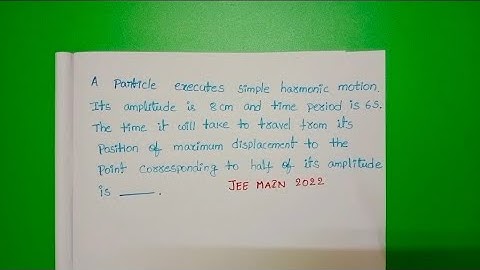 A Particle executes simple harmonic motion.
Its amplitude is 8cm and time period is 6s.
The time it will take to travel from its
Position of maximum displacement to the
Point corresponding to half of its amplitude
is ____.
JEE MAIN 2022